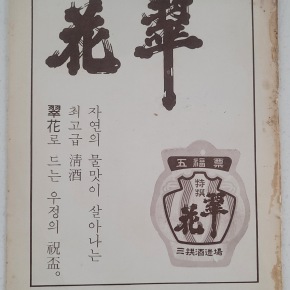 翠花
자연의 물맛이 살아나는
최고급 清酒
翠花로 드는 우정의 祝盃。
五福票
特撰
翠花
三拱酒造場